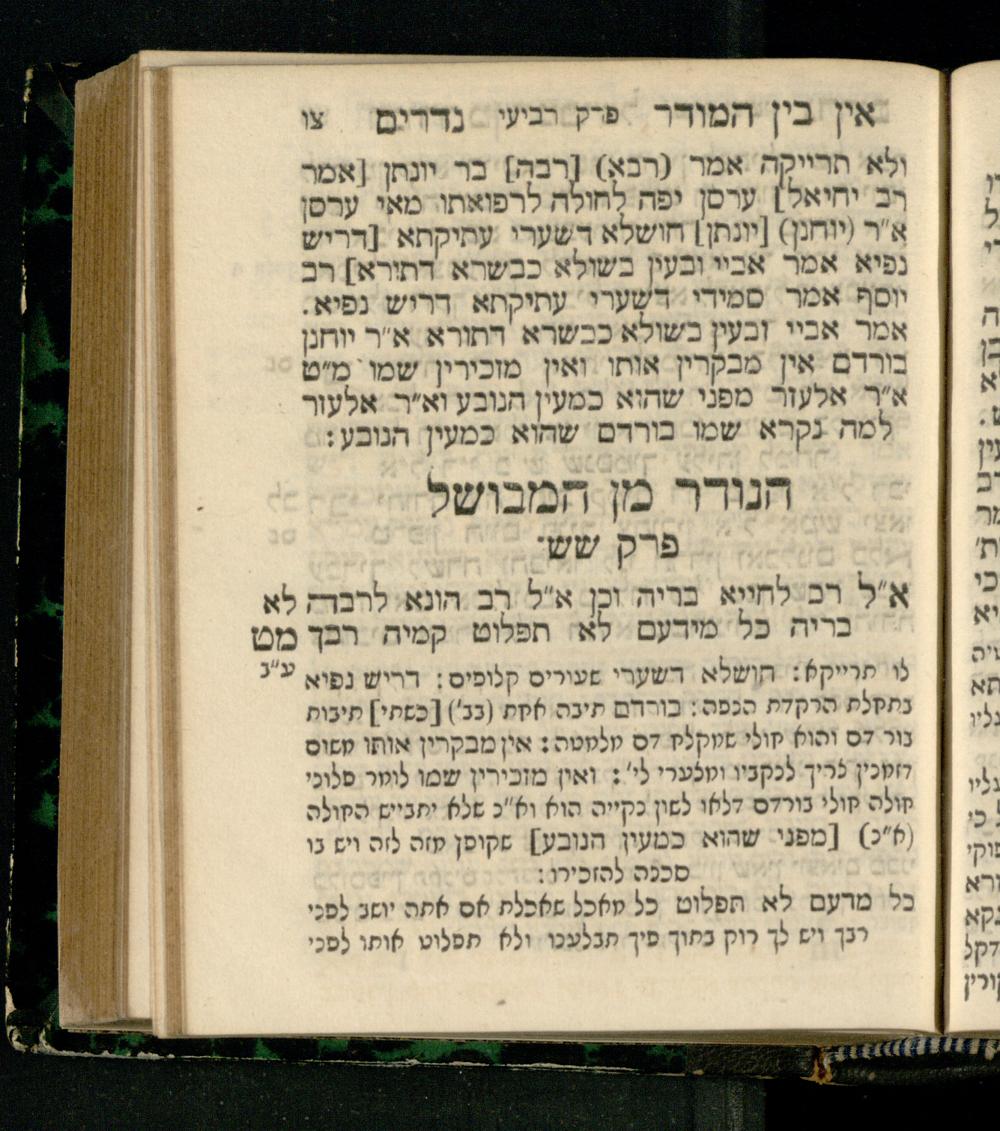 אין בין המודר פרק רביעי נדרים צו
ולא תרייקה אמר (רבא) [רבה] בר יונתן [אמר
רב יחיאל] ערסן יפה לחולה לרפואתו מאי ערסן
א״ר (יוחנן) [יונתן] חושלא דשערי עתיקתא [דריש
נפיא אמר אביי ובעין בשולא כבשרא דתורא] רב
יוסף אמר סמידי דשערי עתיקתא דריש נפיא.
אמר אביי ובעין בשולא כבשרא דתורא א״ר יוחנן
בורדם אין מבקרין אותו ואין מזכירין שמו מ״ט
א״ר אלעזר מפני שהוא כמעין הנובע וא״ר אלעזר
למה נקרא שמו בורדם שהוא כמעין הנובע:
הנודר מן המבושל
פרק ששי
א״ל רב לחייא בריה וכן א״ל רב הונא לרבה
בריה כל מידעם לא תפלוט קמיה רבך
לא
מט
ע״ב
לו תרייקא: חושלא דשערי שעורים קלופים: דריש נפיא
בתחלת הרקדת הנפה: בורדם תיבה אחת (בב׳) [כשתי] תיבות
בור דם והוא חולי שמקלח דם מלמטה: אין מבקרין אותו משום
דזמנין צריך לנקביו ומצערי לי׳: ואין מזכירין שמו לומר פלוני
חולה חולי בורדם דלאו לשון נקייה הוא וא״כ שלא יתבייש החולה
(א״כ) [מפני שהוא כמעין הנובע] שקופץ מזה לזה ויש בו
סכנה להזכירו:
כל מדעם לא תפלוט כל מאכל שאכלת אם אתה יושב לפני
רבך ויש לך רוק בתוך פיך תבלענו ולא תפלוט אותו לפני